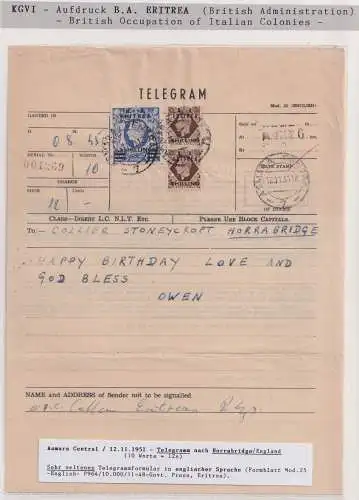 KGVI - Aufdruck B.A. ERITREA (British Administration)
- British Occupation of Italian Colonies -
TELEGRAM
Mod. 25 (ENGLISH)
HANDED IN
SERIAL No.
WORDS
10
CHARGE
DATE STAMP
OF OFFICE
CLASS—INSERT L.C. N.L.T. ETC.
PLEASE USE BLOCK CAPITALS.
To:— COLLIER STONEYCROFT HORRABRIDGE
HAPPY BIRTHDAY LOVE AND
GOD BLESS
OWEN
NAME and ADDRESS of Sender not to be signalled
Asmara Central / 12.11.1951 - Telegramm nach Horrabridge/England
(10 Worte = 12s)
Sehr seltenes Telegrammformular in englischer Sprache (Formblatt Mod.25
-English- P964/10.000/11-48-Govt. Press, Eritrea).